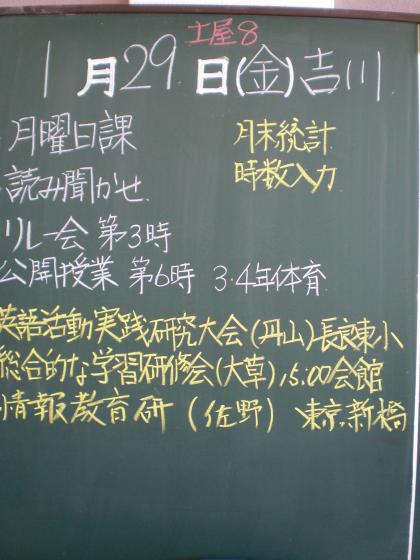 土屋8
1月29日(金)吉川
月曜日課
読み聞かせ
リレー会 第3時
公開授業 第6時 3·4年体育
月末統計
時数入力
英語活動実践研究大会(丹山)長良東小
総合的な学習研修会(大草)15.00会館
情報教育研(佐野)東京.新橋